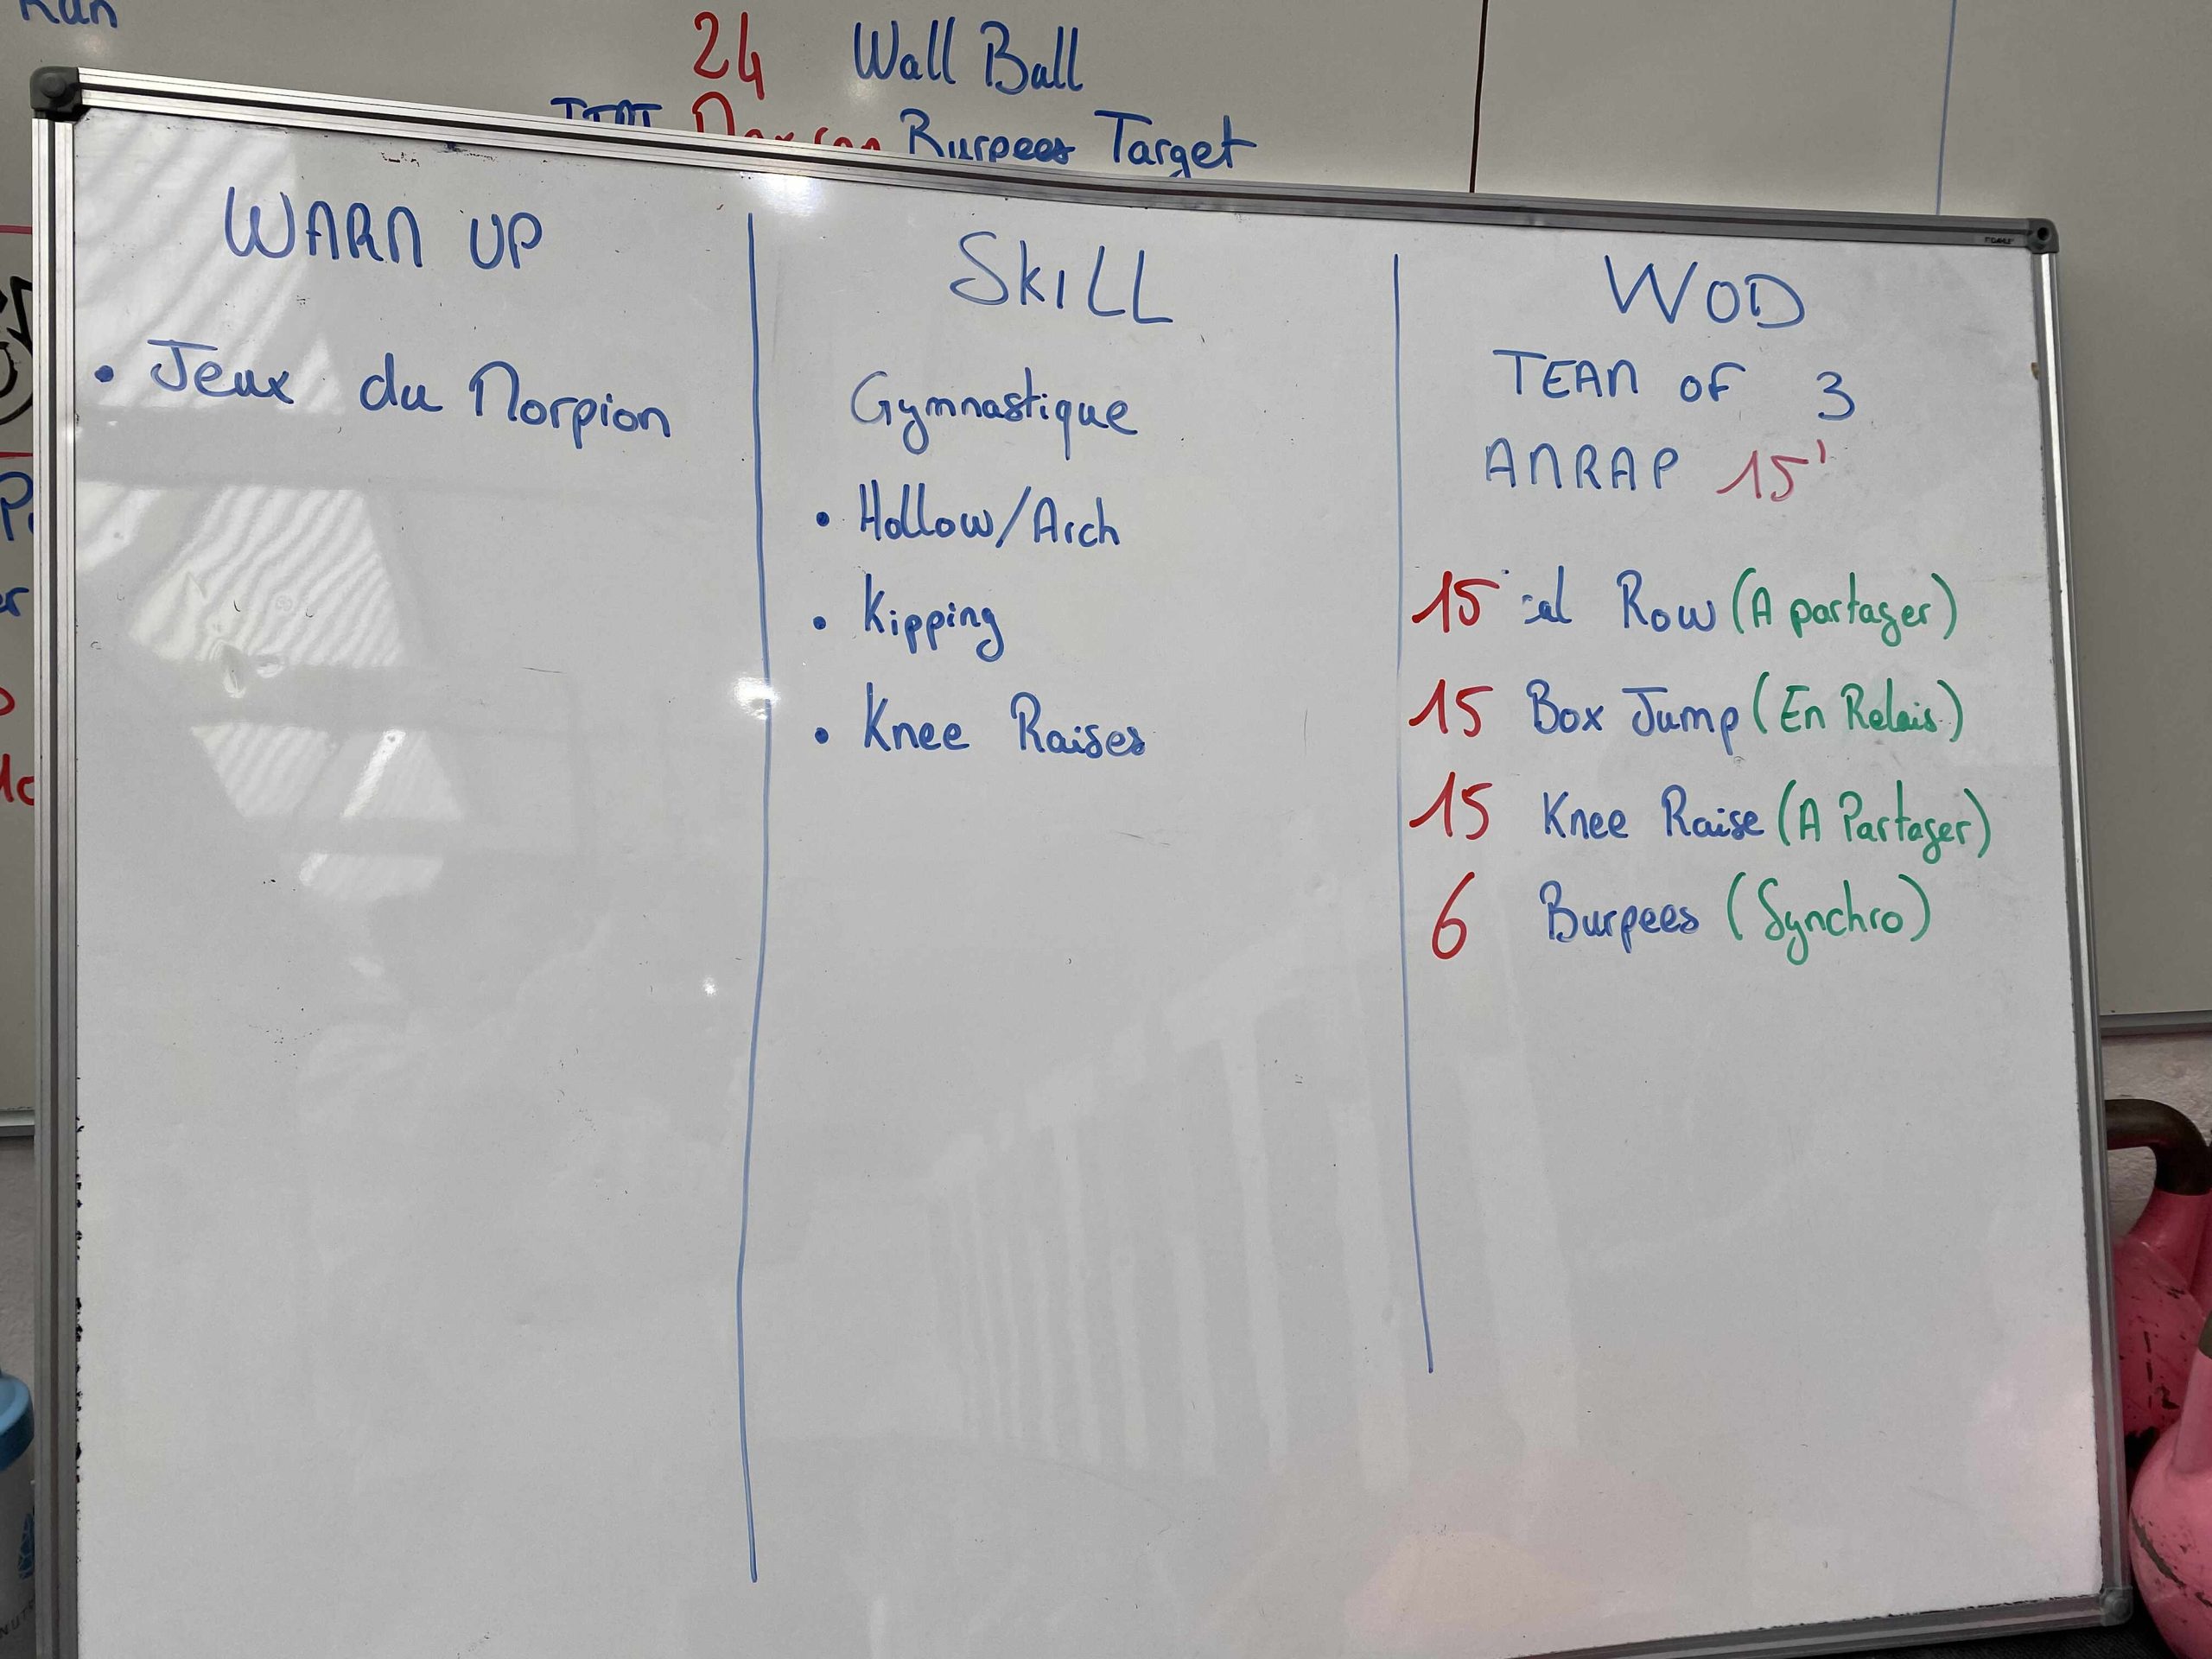 24 Wall Ball
Burpees Target
WARM UP
• Jeux du Morpion
SKILL
Gymnastique
• Hollow/Arch
• Kipping
• Knee Raises
WOD
TEAM OF 3
AMRAP 15'
15 cal Row (A partager)
15 Box Jump (En Relais)
15 Knee Raise (A Partager)
6 Burpees (Synchro)